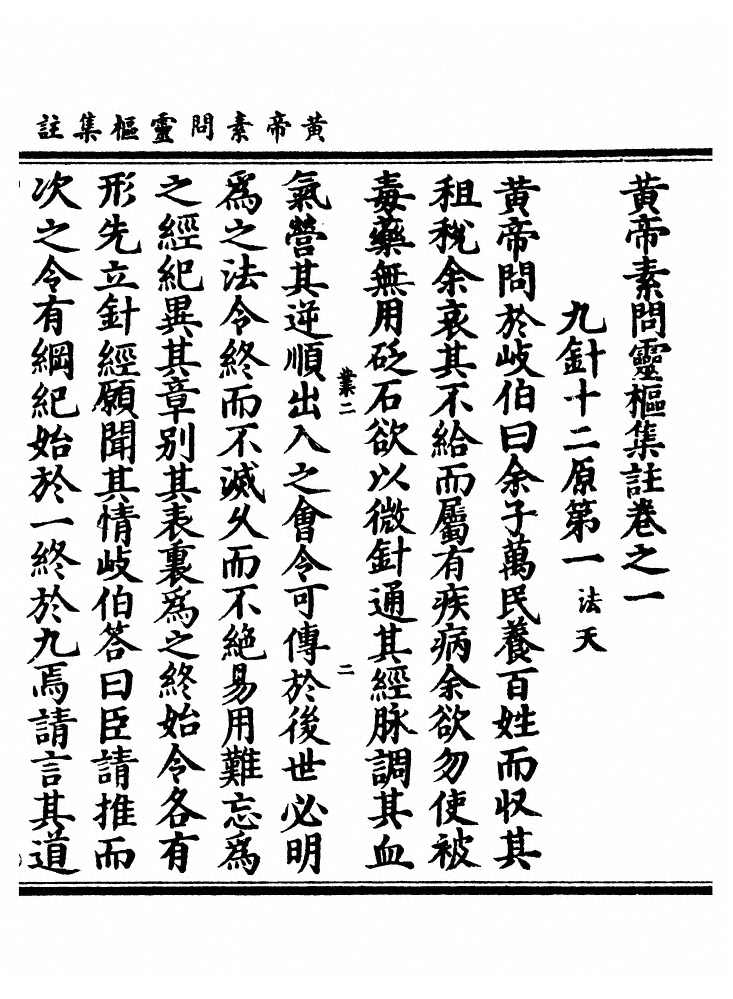 黃帝素問靈樞集註
黃帝素問靈樞集註卷之一
九針十二原第一 法天
黃帝問於岐伯曰余子萬民養百姓而収其
租稅余哀其不給而屬有疾病余欲勿使被
毒藥無用砭石欲以微針通其經脉調其血
業二
二
氣營其逆順出入之會令可傳於後世必明
爲之法令終而不滅久而不絕易用難忘爲
之經紀異其章別其表裏爲之終始令各有
形先立針經願聞其情岐伯答曰臣請推而
次之令有綱紀始於一終於九焉請言其道